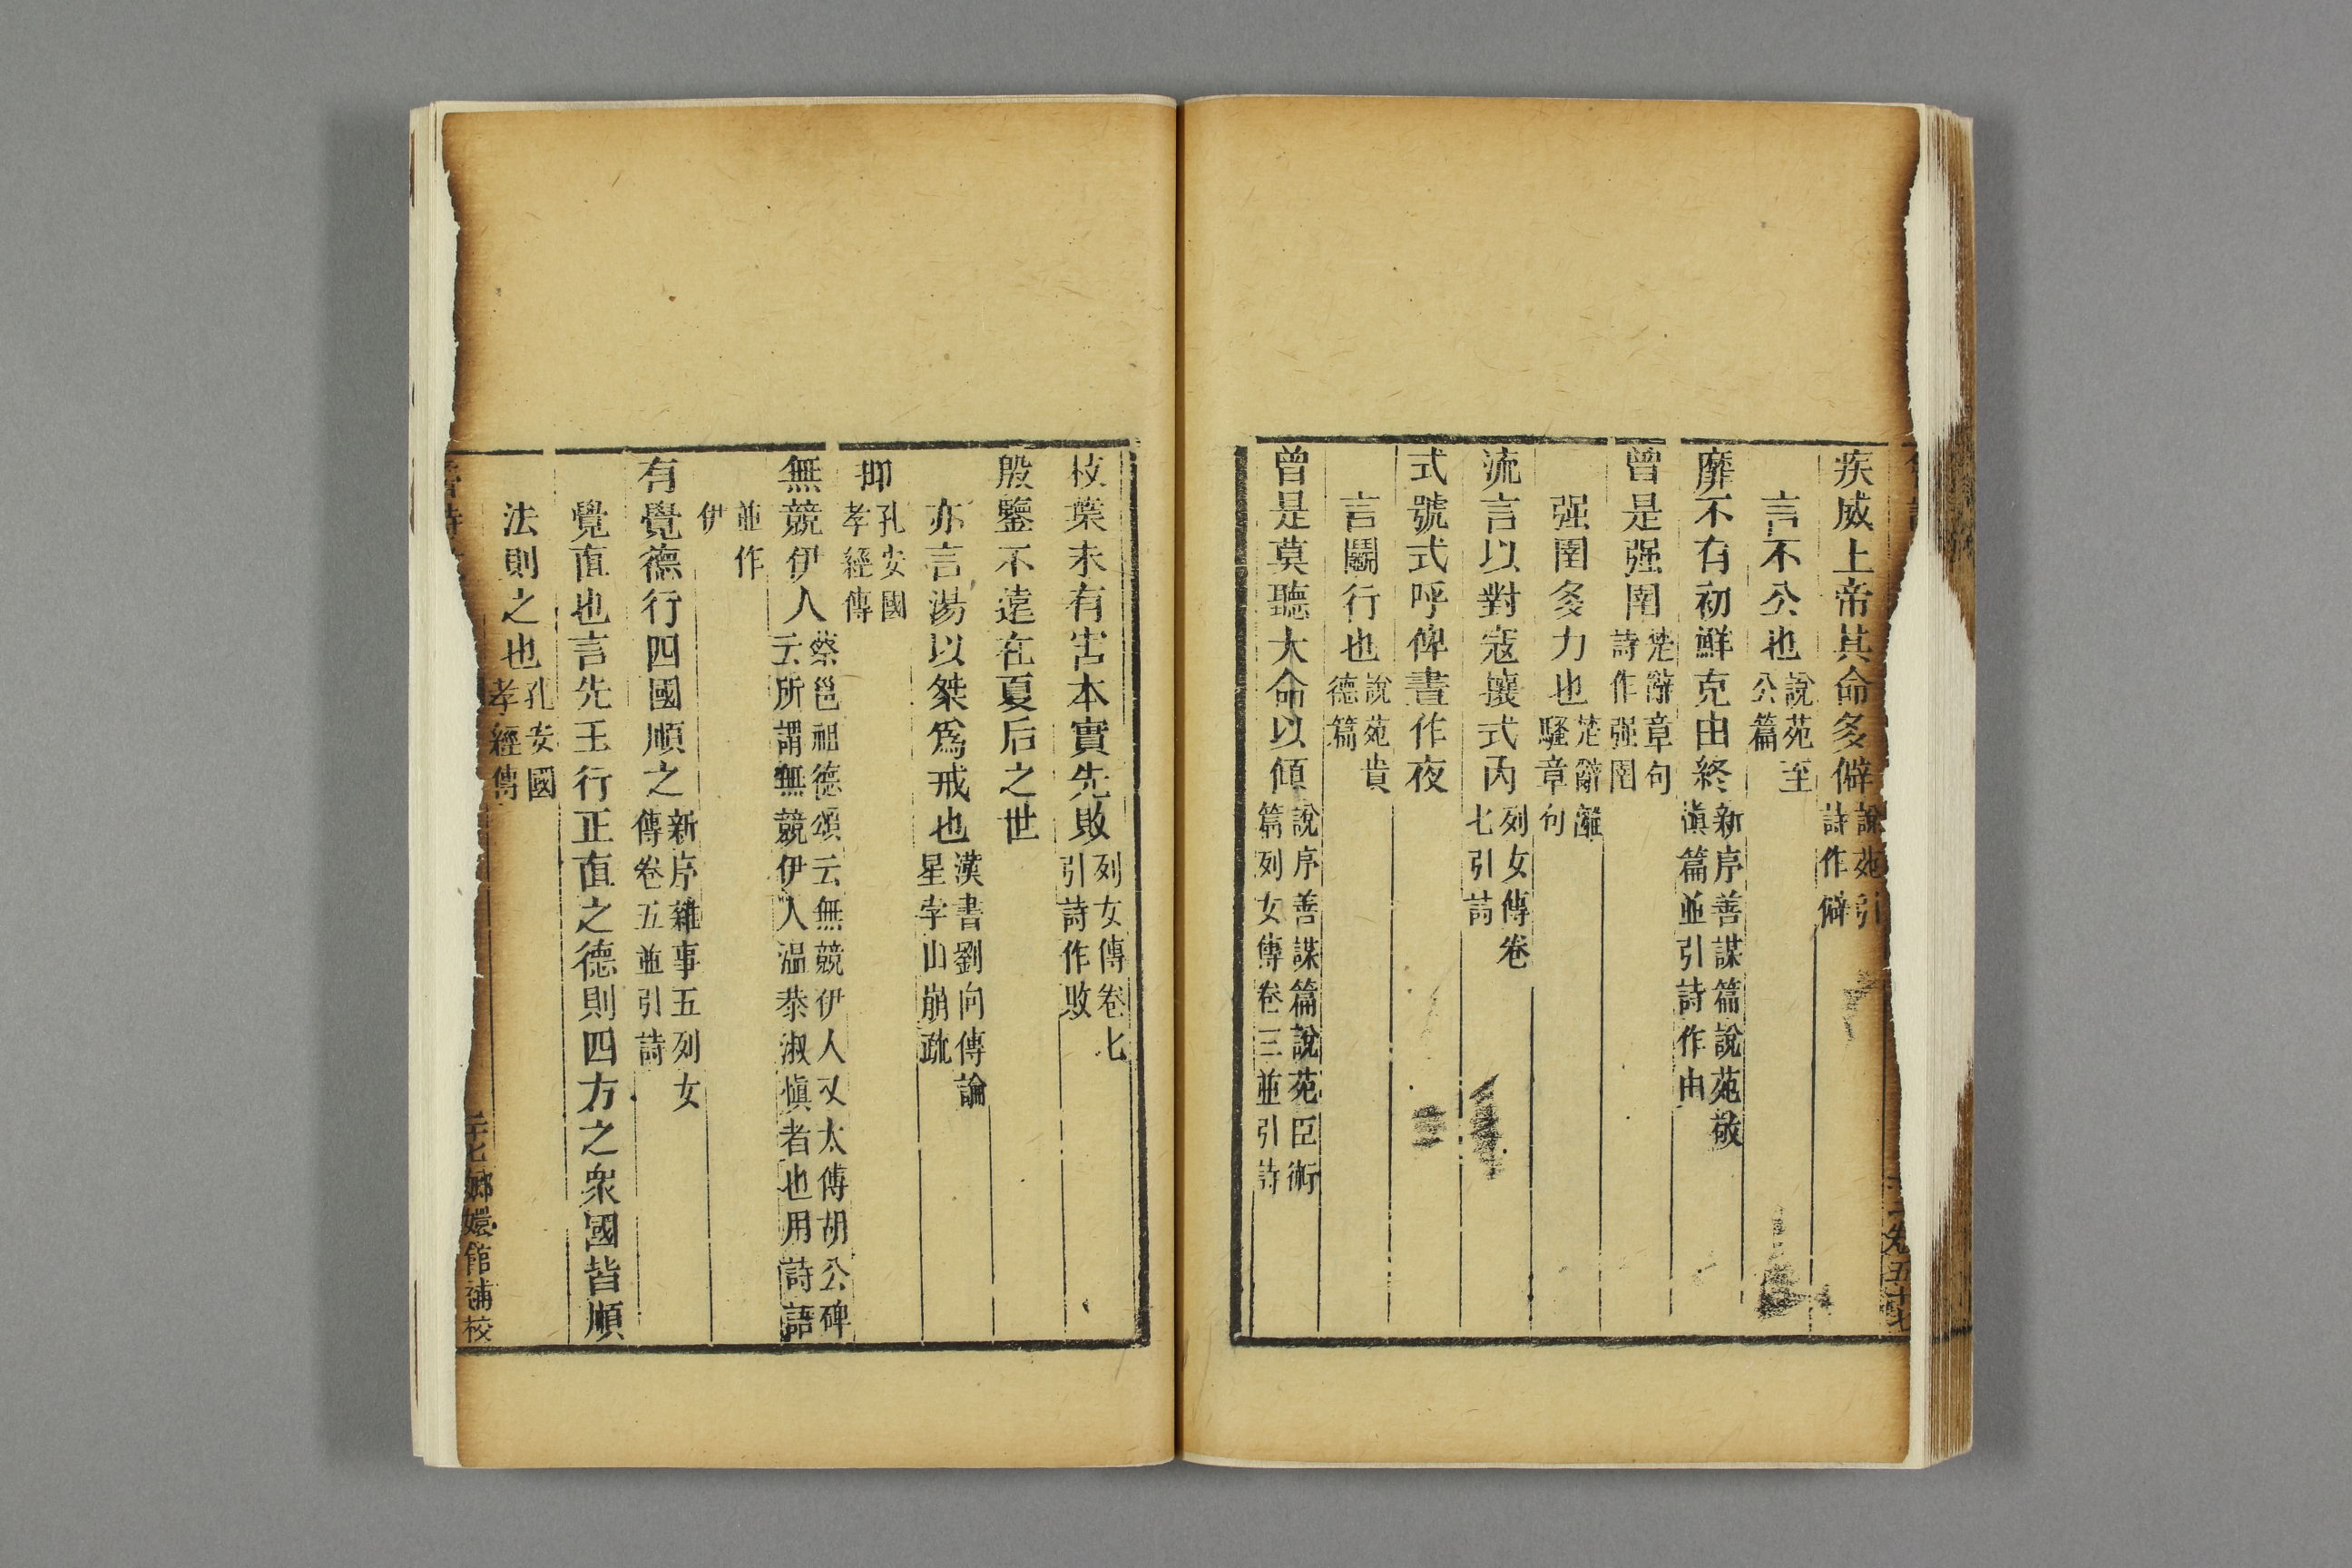 疾威上帝其命多僻說苑引詩作僻
言不公也說苑至公篇
靡不有初鮮克由終新序善謀篇說苑敬愼篇並引詩作由
曾是强圉楚辭章句詩作强圉
强圉多力也楚辭離騷章句
流言以對寇攘式內列女傳卷七引詩
式號式呼俾晝作夜
言鬭行也說苑貴德篇
曾是莫聽大命以傾說序善謀篇說苑臣術篇列女傳卷三並引詩
枝葉未有害本實先敗列女傳卷七引詩作敗
殷鑒不遠在夏后之世
亦言湯以桀爲戒也漢書劉向傳論星孛山崩疏
抑孔安國孝經傳
無競伊人蔡邕祖德頌云無競伊人又太傅胡公碑云所謂無競伊人溫恭淑愼者也用詩語
並作伊
有覺德行四國順之新序雜事五列女傳卷五並引詩
覺直也言先王行正直之德則四方之衆國皆順
法則之也孔安國孝經傳
嫏嬛館補校